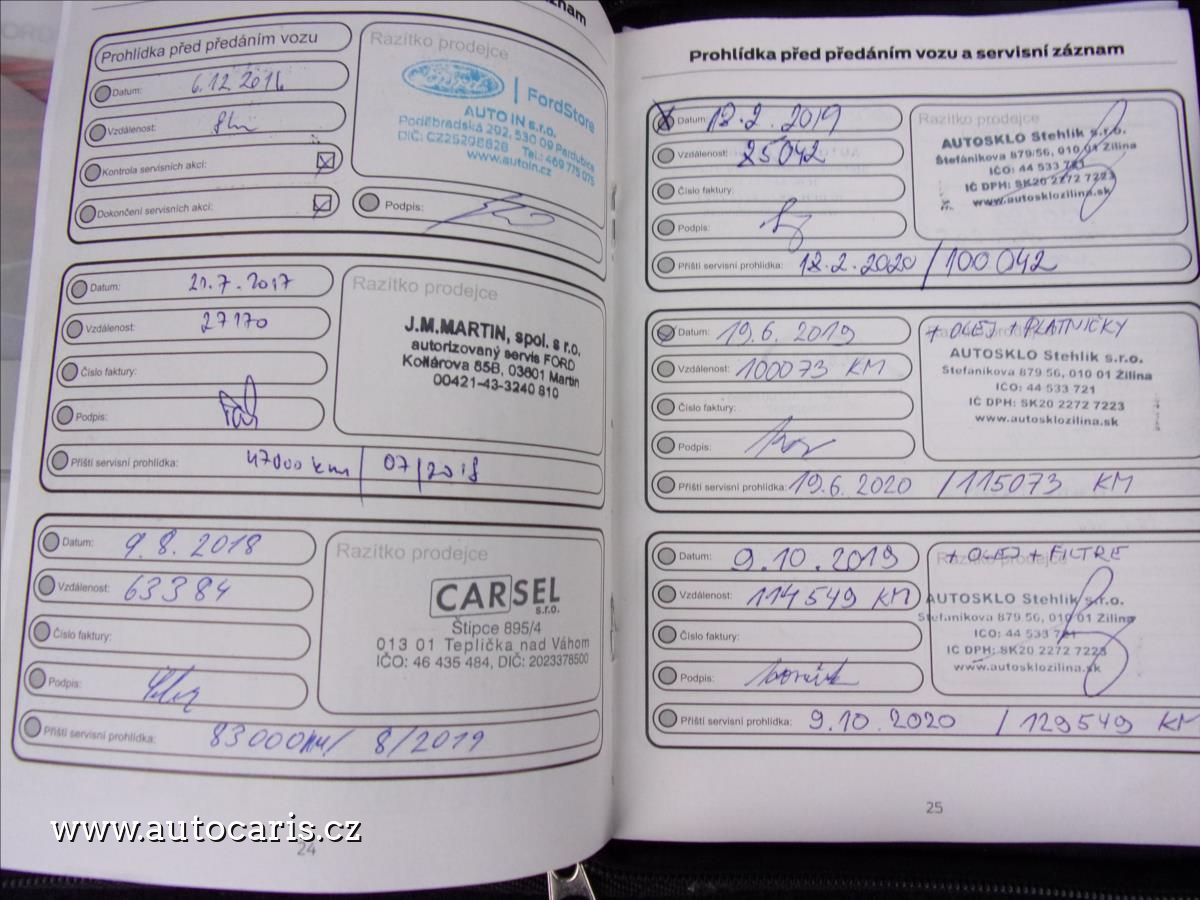 znam
Prohlídka před předáním vozu
Datum: 6.12 2016
Vzdálenost:
Kontrola servisních akcí:
Dokončení servisních akcí:
Razítko prodejce
Ford | FordStore
AUTO IN s.r.o.
Poděbradská 292, 530 09 Pardubice
DIČ: CZ25298828 Tel.: 469 775 075
www.autoin.cz
Podpis:
Datum: 21.7.2017
Vzdálenost: 27170
Číslo faktury:
Podpis:
Razítko prodejce
J.M.MARTIN, spol. s r.o.
autorizovaný servis FORD
Kollárova 85B, 03601 Martin
00421-43-3240 810
Příští servisní prohlídka: 47000 km / 07/2018
Datum: 9.8.2018
Vzdálenost: 63384
Číslo faktury:
Podpis:
Razítko prodejce
CARSEL
s.r.o.
Štipce 895/4
013 01 Teplička nad Váhom
IČO: 46 435 484, DIČ: 2023378500
Příští servisní prohlídka: 83000KM/ 8/2019
24
Prohlídka před předáním vozu a servisní záznam
Datum: 18.2.2019
Vzdálenost: 25042
Číslo faktury:
Podpis:
Razítko prodejce
AUTOSKLO Stehlik s.r.o.
Štefánikova 879/56, 010 01 Žilina
IČO: 44 533 721
IČ DPH: SK20 2272 7223
www.autosklozilina.sk
Příští servisní prohlídka: 18.2.2020 /100042
Datum: 19.6.2019
Vzdálenost: 100073 KM
Číslo faktury:
Podpis:
+ OLEJ + PLATNIČKY
AUTOSKLO Stehlik s.r.o.
Štefánikova 879 56, 010 01 Žilina
IČO: 44 533 721
IČ DPH: SK20 2272 7223
www.autosklozilina.sk
Příští servisní prohlídka: 19.6.2020 /115073 KM
Datum: 9.10.2019
Vzdálenost: 114549 KM
Číslo faktury:
Podpis:
+ OLEJ + FILTRE
Razítko prodejce
AUTOSKLO Stehlik s.r.o.
Štefánikova 879 56, 010 01 Žilina
IČO: 44 533 721
IČ DPH: SK20 2272 7223
www.autosklozilina.sk
Příští servisní prohlídka: 9.10.2020 /129549 KM
25
www.autocaris.cz